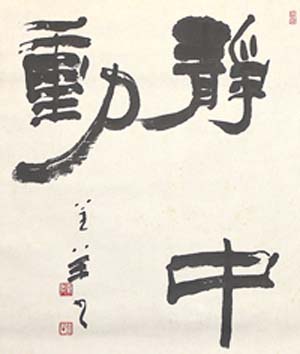 靜中
動